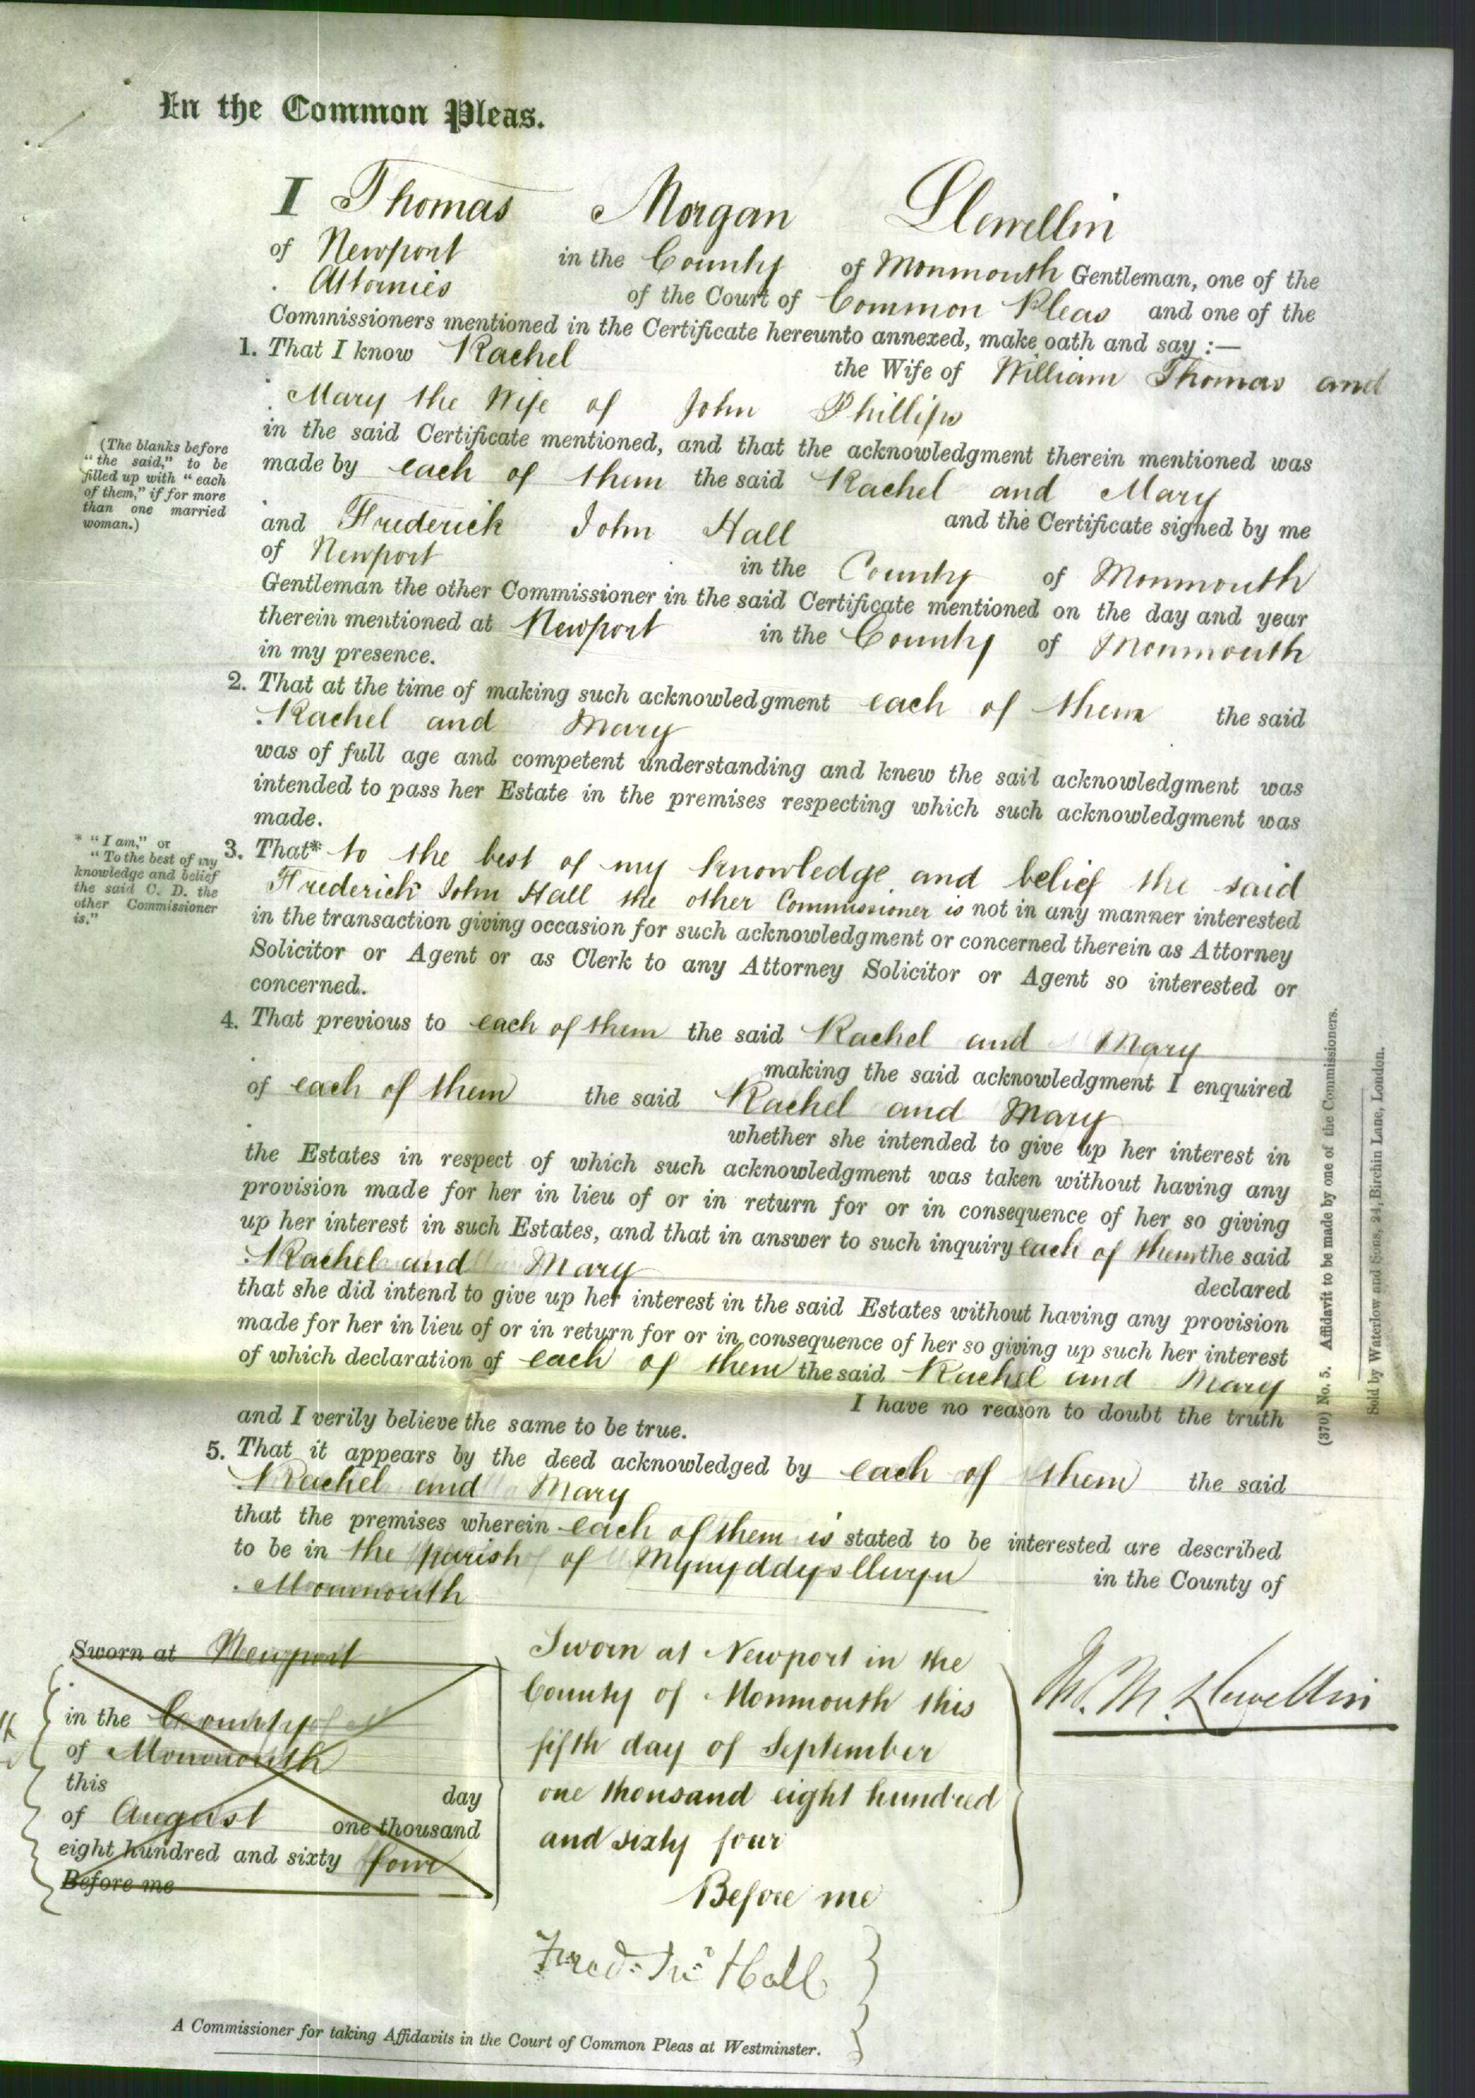 In the Common Pleas.
I Thomas Morgan Llewellin
of Newport in the County of Monmouth Gentleman, one of the
Attornies of the Court of Common Pleas and one of the
Commissioners mentioned in the Certificate hereunto annexed, make oath and say :—
1. That I know Rachel the Wife of William Thomas and
Mary the Wife of John Phillips
in the said Certificate mentioned, and that the acknowledgment therein mentioned was
made by each of them the said Rachel and Mary
and the Certificate signed by me
and Frederick John Hall
of Newport in the County of Monmouth
Gentleman the other Commissioner in the said Certificate mentioned on the day and year
therein mentioned at Newport in the County of Monmouth
in my presence.
(The blanks before
"the said," to be
filled up with "each
of them," if for more
than one married
woman.)
2. That at the time of making such acknowledgment each of them the said
Rachel and Mary
was of full age and competent understanding and knew the said acknowledgment was
intended to pass her Estate in the premises respecting which such acknowledgment was
made.
* "I am," or
"To the best of my
knowledge and belief
the said C. D. the
other Commissioner
is."
3. That* to the best of my knowledge and belief the said
Frederick John Hall the other Commissioner is not in any manner interested
in the transaction giving occasion for such acknowledgment or concerned therein as Attorney
Solicitor or Agent or as Clerk to any Attorney Solicitor or Agent so interested or
concerned.
4. That previous to each of them the said Rachel and Mary
making the said acknowledgment I enquired
of each of them the said Rachel and Mary
whether she intended to give up her interest in
the Estates in respect of which such acknowledgment was taken without having any
provision made for her in lieu of or in return for or in consequence of her so giving
up her interest in such Estates, and that in answer to such inquiry each of them the said
Rachel and Mary declared
that she did intend to give up her interest in the said Estates without having any provision
made for her in lieu of or in return for or in consequence of her so giving up such her interest
of which declaration of each of them the said Rachel and Mary
I have no reason to doubt the truth
and I verily believe the same to be true.
5. That it appears by the deed acknowledged by each of them the said
Rachel and Mary
that the premises wherein each of them is stated to be interested are described
to be in the parish of Mynyddyslwyn in the County of
Monmouth
Sworn at Newport
in the County
of Monmouth
this day
of August one thousand
eight hundred and sixty four
Before me
Sworn at Newport in the
County of Monmouth this
fifth day of September
one thousand eight hundred
and sixty four
Before me
Fred: Jno: Hall
Th. M. Llewellin
A Commissioner for taking Affidavits in the Court of Common Pleas at Westminster.
(370) No. 5. Affidavit to be made by one of the Commissioners.
Sold by Waterlow and Sons, 24, Birchin Lane, London.